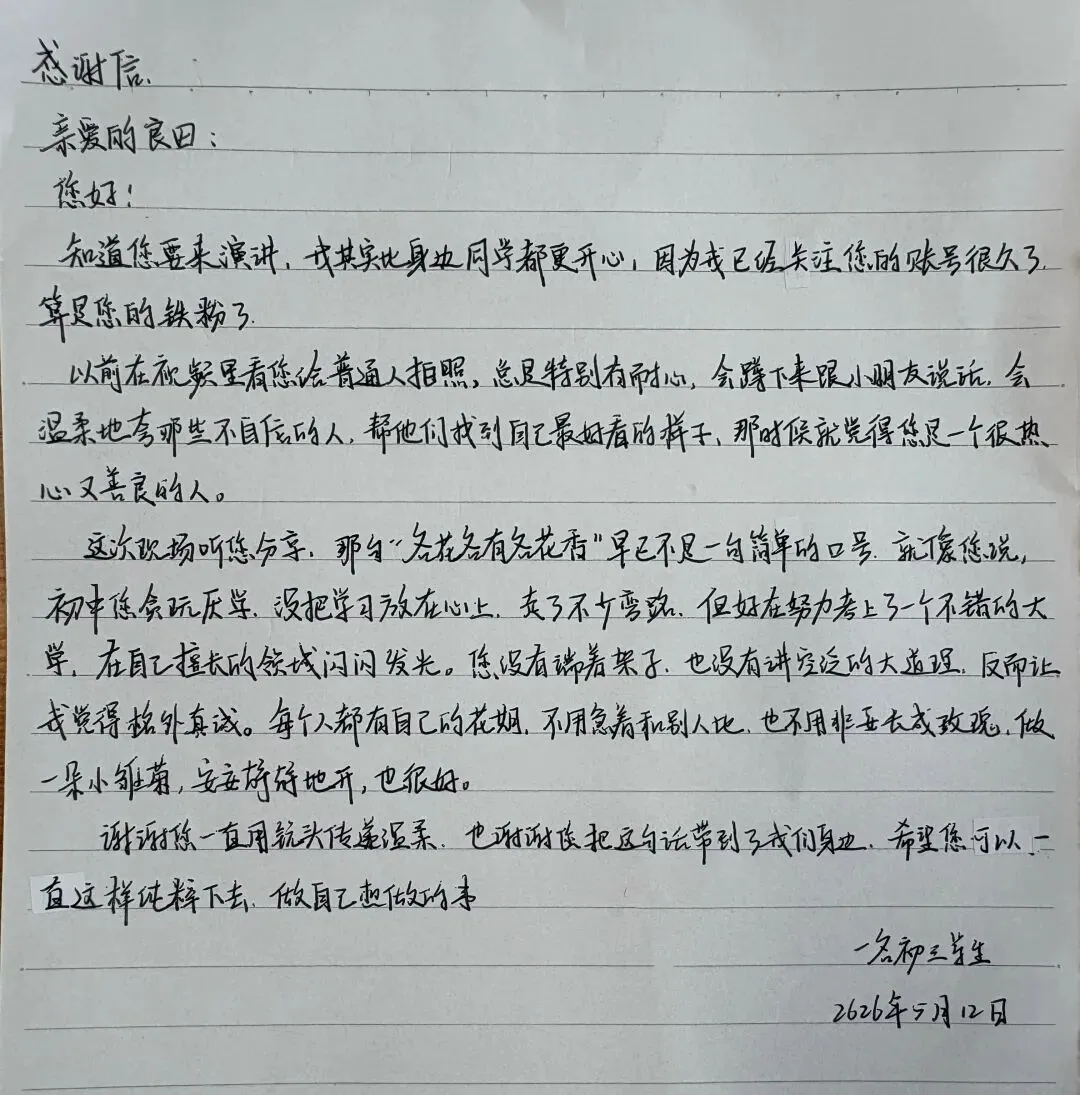 感谢信.
亲爱的良田：
您好！
知道您要来演讲，我其实比身边同学都更开心，因为我已经关注您的账号很久了.
算是您的铁粉了.
以前在视频里看您给普通人拍照，总是特别有耐心，会蹲下来跟小朋友说话，会
温柔地夸那些不自信的人，帮他们找到自己最好看的样子，那时候就觉得您是一个很热
心又善良的人。
这次现场听您分享，那句“各花各有各花香”早已不是一句简单的口号.就像您说，
初中您贪玩厌学，没把学习放在心上，走了不少弯路，但好在努力考上了一个不错的大
学，在自己擅长的领域闪闪发光。您没有端着架子，也没有讲空泛的大道理，反而让
我觉得格外真诚。每个人都有自己的花期，不用急着和别人比，也不用非要长成玫瑰，做
一朵小雏菊，安安静静地开，也很好。
谢谢您一直用镜头传递温柔，也谢谢您把这句话带到了我们身边，希望您可以一
直这样纯粹下去，做自己想做的事
一名初三学生
2026年5月12日